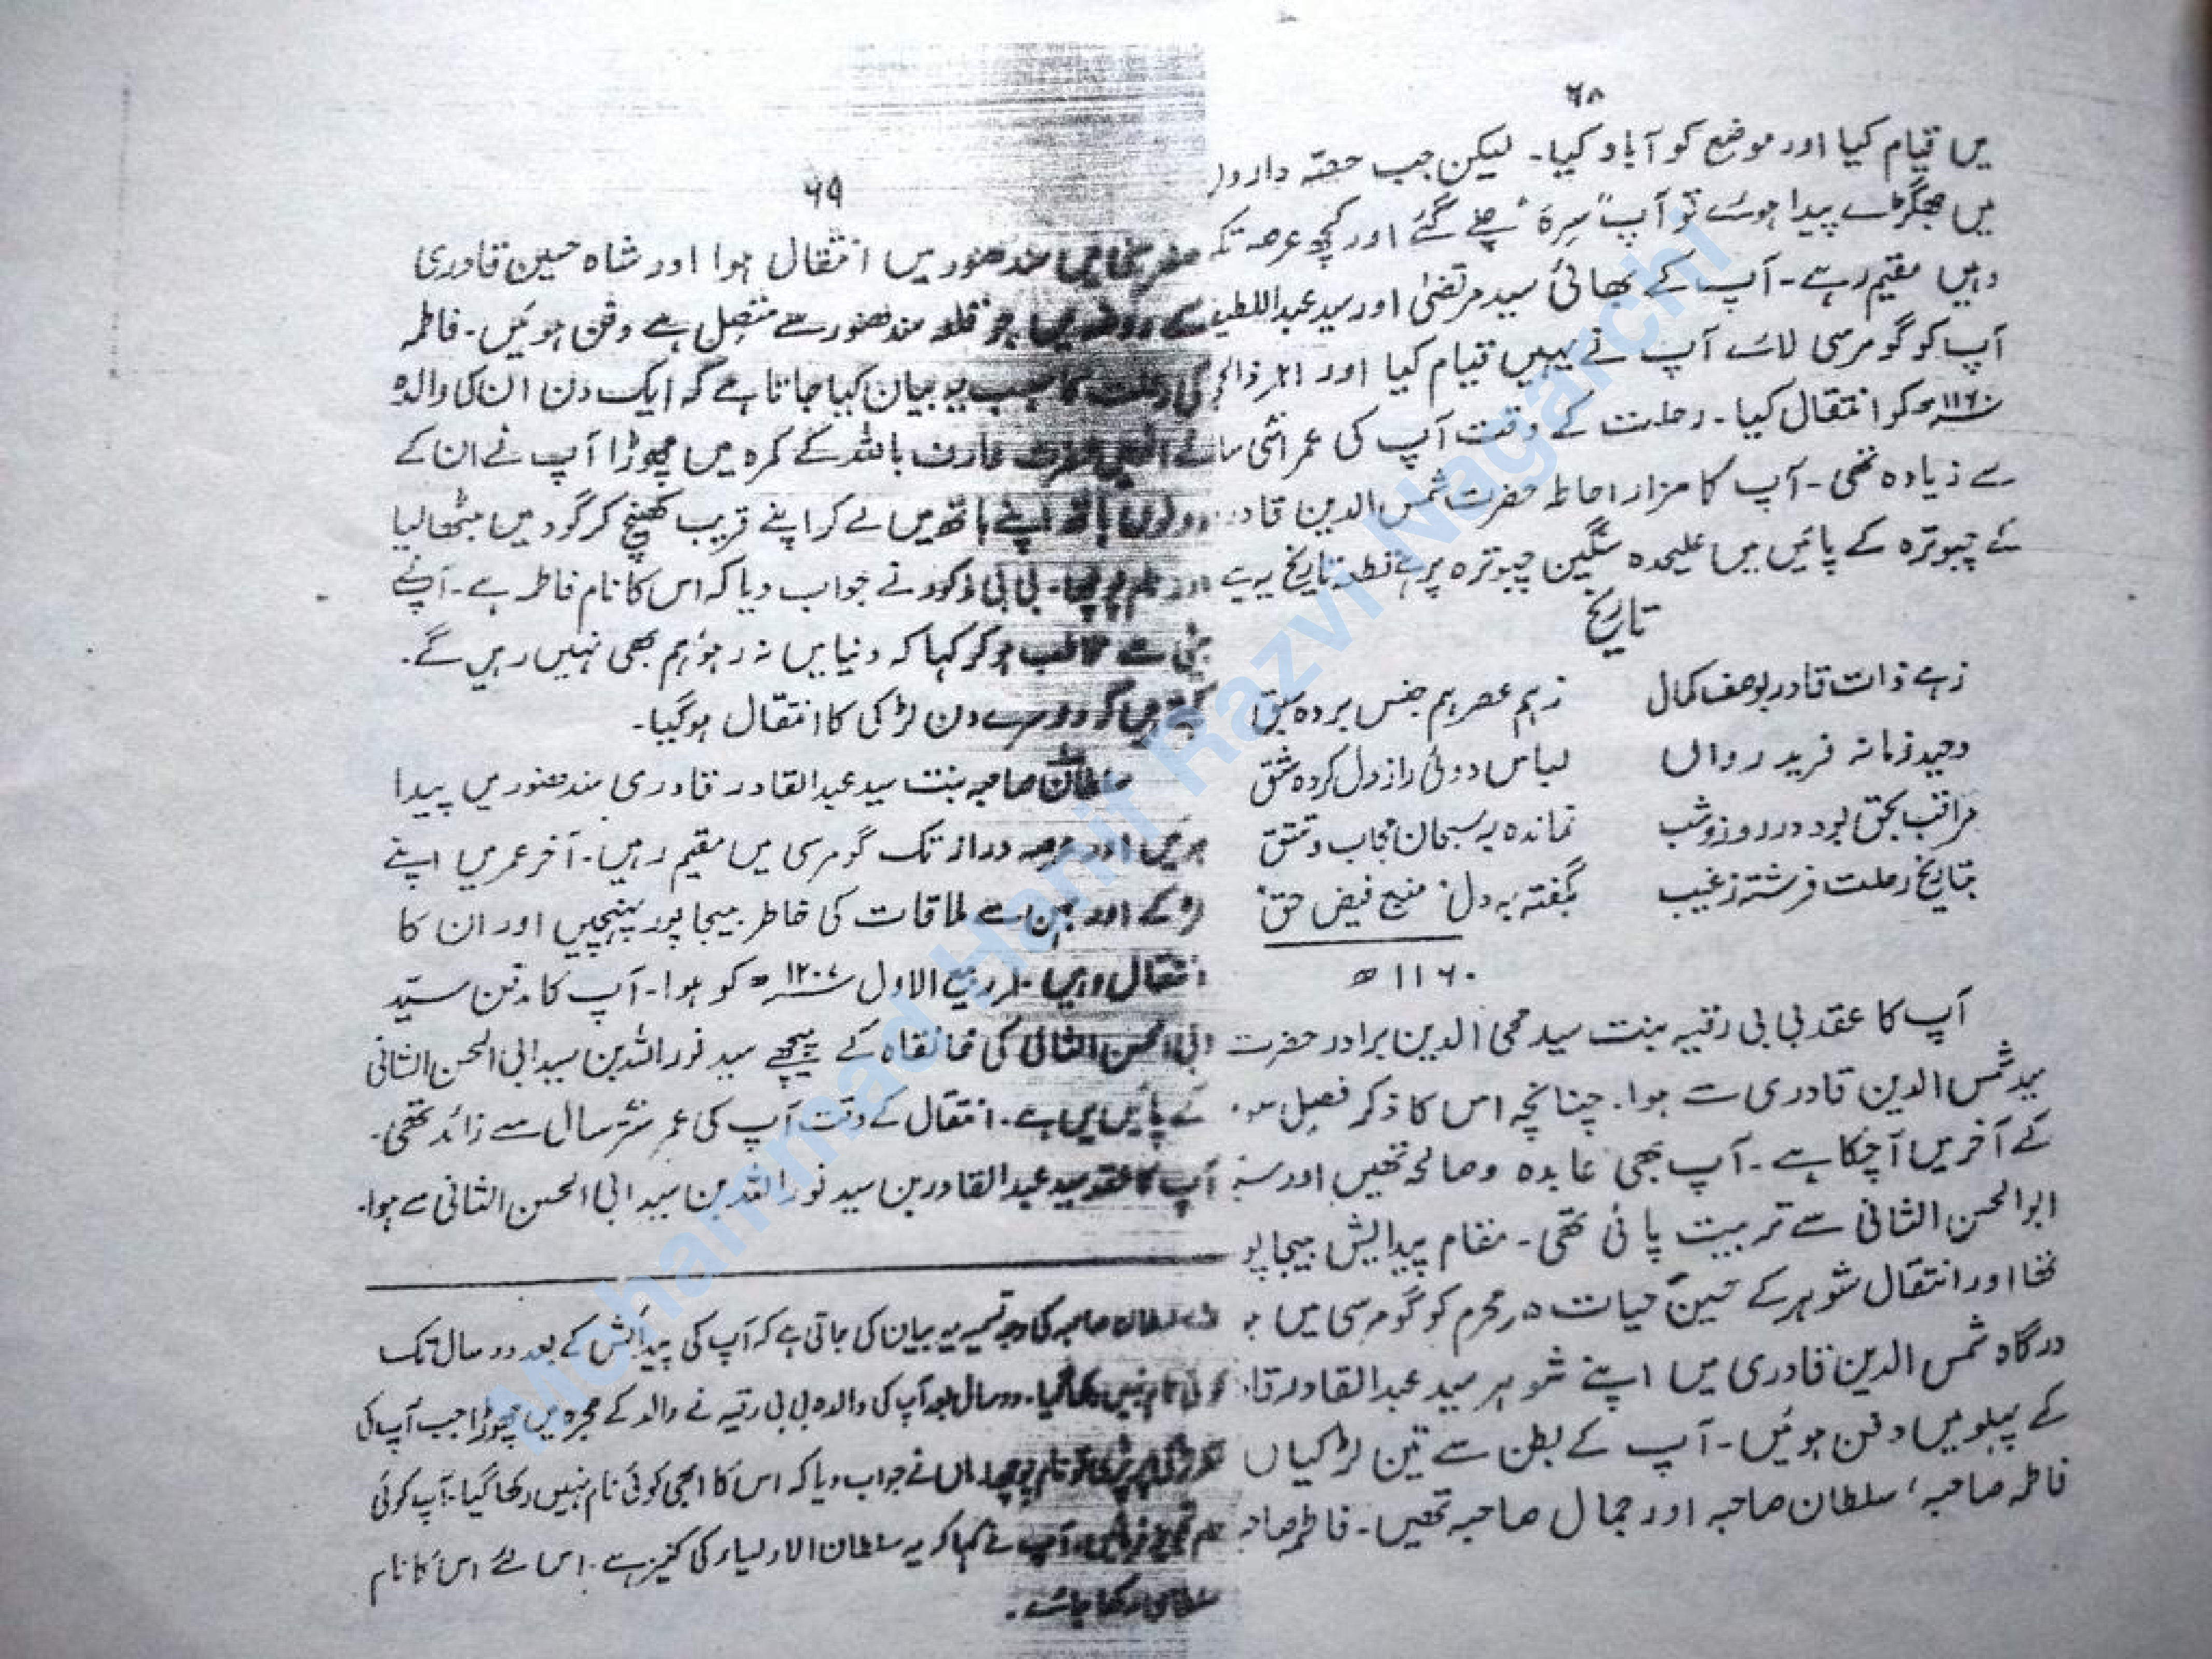 ۶۸
میں قیام کیا اور موضع کو آباد کیا۔ لیکن جب حصّہ داروں
میں جھگڑے پیدا ہوئے تو آپ "سِرہ" چلے گئے اور کچھ عرصہ تک
وہیں مقیم رہے۔ آپ کے بھائی سید مرتضیٰ اور سید عبداللطیف
آپ کو گومرسی لائے آپ نے یہیں قیام کیا اور
۱۱۶۰ھ کو انتقال کیا۔ رحلت کے وقت آپ کی عمر اسّی سال
سے زیادہ تھی۔ آپ کا مزار احاطہ حضرت شمس الدین قادری
کے چبوترہ کے پائیں میں علیحدہ سنگین چبوترہ پر ہے قطعہ تاریخ یہ ہے
تاریخ
زہے ذات قادر بوصف کمال زہم عصر ہم جنس بردہ سبق
وحید زمانہ فرید رواں لباس دوئی را ز دل کردہ شق
مراقب بحق بود در روز و شب نماندہ بہ سبحان حجاب و تتق
بتاریخ رحلت فرشتہ ز غیب بگفتہ بہ دل "منبع فیض حق"
۱۱۶۰ھ
آپ کا عقد بی بی رقیہ بنت سید محی الدین برادر حضرت
سید شمس الدین قادری سے ہوا۔ چنانچہ اس کا ذکر فصل
کے آخر میں آچکا ہے۔ آپ بھی عابدہ و صالحہ تھیں اور سید
ابوالحسن الثانی سے تربیت پائی تھی۔ مقام پیدایش بیجاپور
تھا اور انتقال شوہر کے حین حیات ۵ر محرم کو گومرسی میں
درگاہ شمس الدین قادری میں اپنے شوہر سید عبدالقادر
کے پہلو میں دفن ہوئیں۔ آپ کے بطن سے تین لڑکیاں
فاطمہ صاحبہ، سلطان صاحبہ اور جمال صاحبہ تھیں۔ فاطمہ صاحبہ
۶۹
میں مندھنور میں انتقال ہوا اور شاہ حسین قادری
کے روضہ میں جو قلعہ مندھنور سے متصل ہے دفن ہوئیں۔ فاطمہ
کی رحلت کا سبب یہ بیان کیا جاتا ہے کہ ایک دن ان کی والدہ
نے انھیں حضرت عارف باللہ کے کمرہ میں چھوڑا آپ نے ان کے
دونوں ہاتھ اپنے ہاتھ میں لے کر اپنے قریب کھینچ کر گود میں بٹھا لیا
اور نام پوچھا۔ بی بی مذکور نے جواب دیا کہ اس کا نام فاطمہ ہے۔ آپ نے
بیٹی سے مخاطب ہو کر کہا کہ دنیا میں نہ رہو ہم بھی نہیں رہیں گے۔
کہتے ہیں کہ دوسرے دن لڑکی کا انتقال ہوگیا۔
سلطان صاحبہ بنت سید عبدالقادر قادری مندھنور میں پیدا
ہوئیں اور عرصہ دراز تک گومرسی میں مقیم رہیں۔ آخر عمر میں اپنے
لڑکے اور بہن سے ملاقات کی خاطر بیجاپور پہنچیں اور ان کا
انتقال وہیں ۱۰ر ربیع الاول ۱۲۰۷ھ کو ہوا۔ آپ کا مدفن سید
ابی الحسن الثانی کی خانقاہ کے پیچھے سید نور اللہ بن سید ابی الحسن الثانی
کے پائیں میں ہے۔ انتقال کے وقت آپ کی عمر ستر سال سے زائد تھی۔
آپ کا عقد سید عبدالقادر بن سید نور اللہ بن سید ابی الحسن الثانی سے ہوا۔
سلطان صاحبہ کی وجہ تسمیہ یہ بیان کی جاتی ہے کہ آپ کی پیدائش کے بعد دو سال تک
کوئی نام نہیں رکھا گیا۔ دو سال بعد آپ کی والدہ بی بی رقیہ نے والد کے حجرہ میں چھوڑا جب آپ کی
نظر لڑکی پر پڑی تو نام پوچھا۔ ماں نے جواب دیا کہ اس کا ابھی کوئی نام نہیں رکھا گیا۔ آپ کوئی
نام تجویز فرمائیں۔ آپ نے کہا کہ یہ سلطان الاولیاء کی کنیز ہے۔ اس لئے اس کا نام
سلطان رکھا جائے۔
Mohammad Hanif Razvi Nagarchi